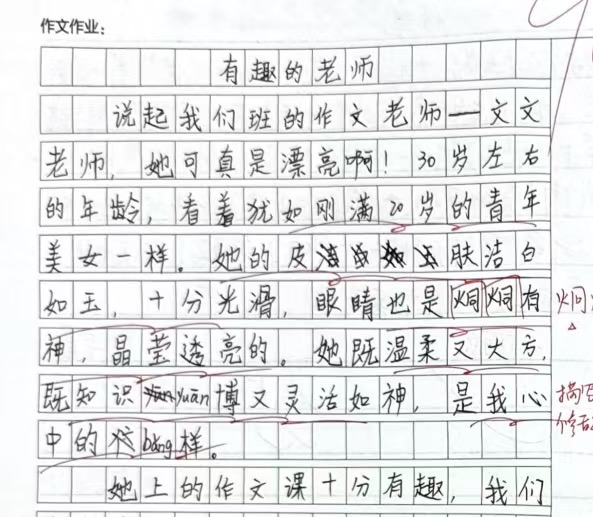 作文作业：
有趣的老师
说起我们班的作文老师—文文
老师，她可真是漂亮啊！30岁左右
的年龄，看着犹如刚满20岁的青年
美女一样。她的皮肤洁白
如玉，十分光滑，眼睛也是炯炯有
神，晶莹透亮的。她既温柔又大方，
既知识yuān博又灵活如神，是我心
中的bǎng样。
她上的作文课十分有趣，我们
炯